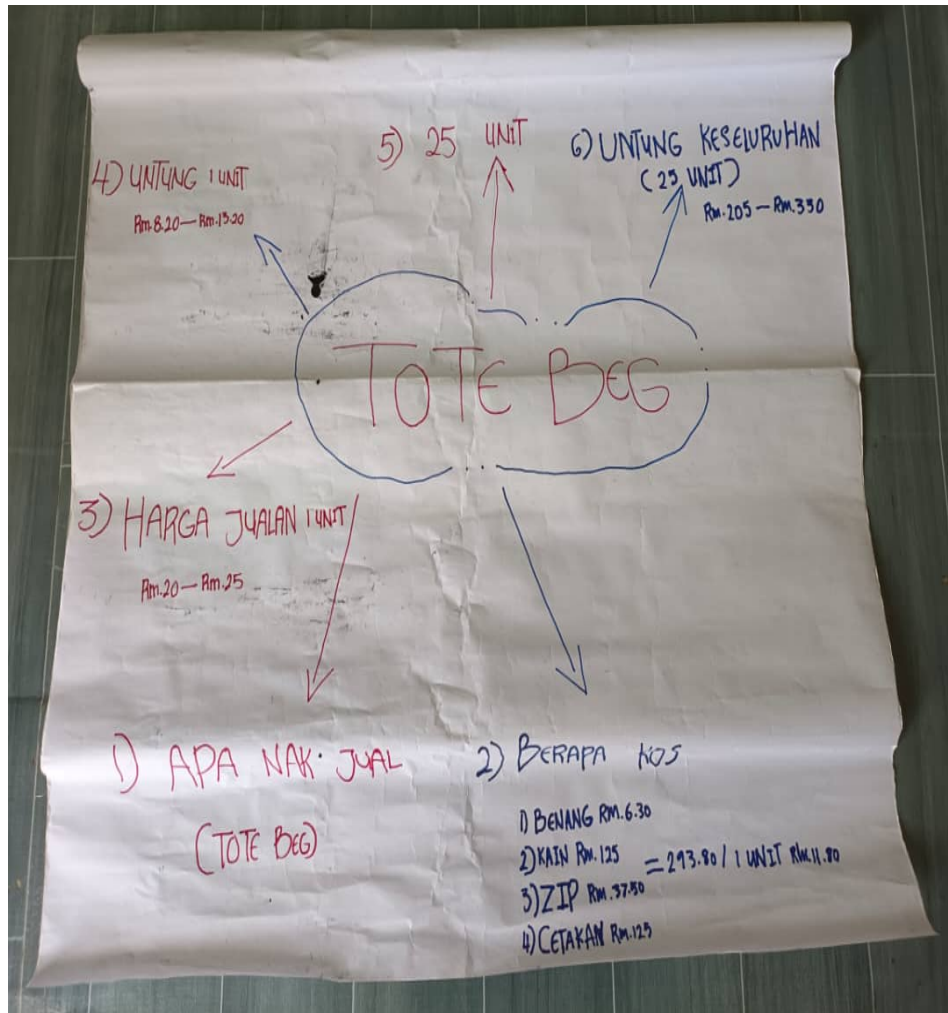 4) UNTUNG 1 UNIT
Rm.8.20 — Rm.13.20
5) 25 UNIT
6) UNTUNG KESELURUHAN
(25 UNIT)
Rm.205 — Rm.330
TOTE BEG
3) HARGA JUALAN 1 UNIT
Rm.20 — Rm.25
1) APA NAK JUAL
(TOTE BEG)
2) BERAPA KOS
1) BENANG RM.6.30
2) KAIN Rm.125
= 293.80 / 1 UNIT RM.11.80
3) ZIP Rm.37.50
4) CETAKAN Rm.125